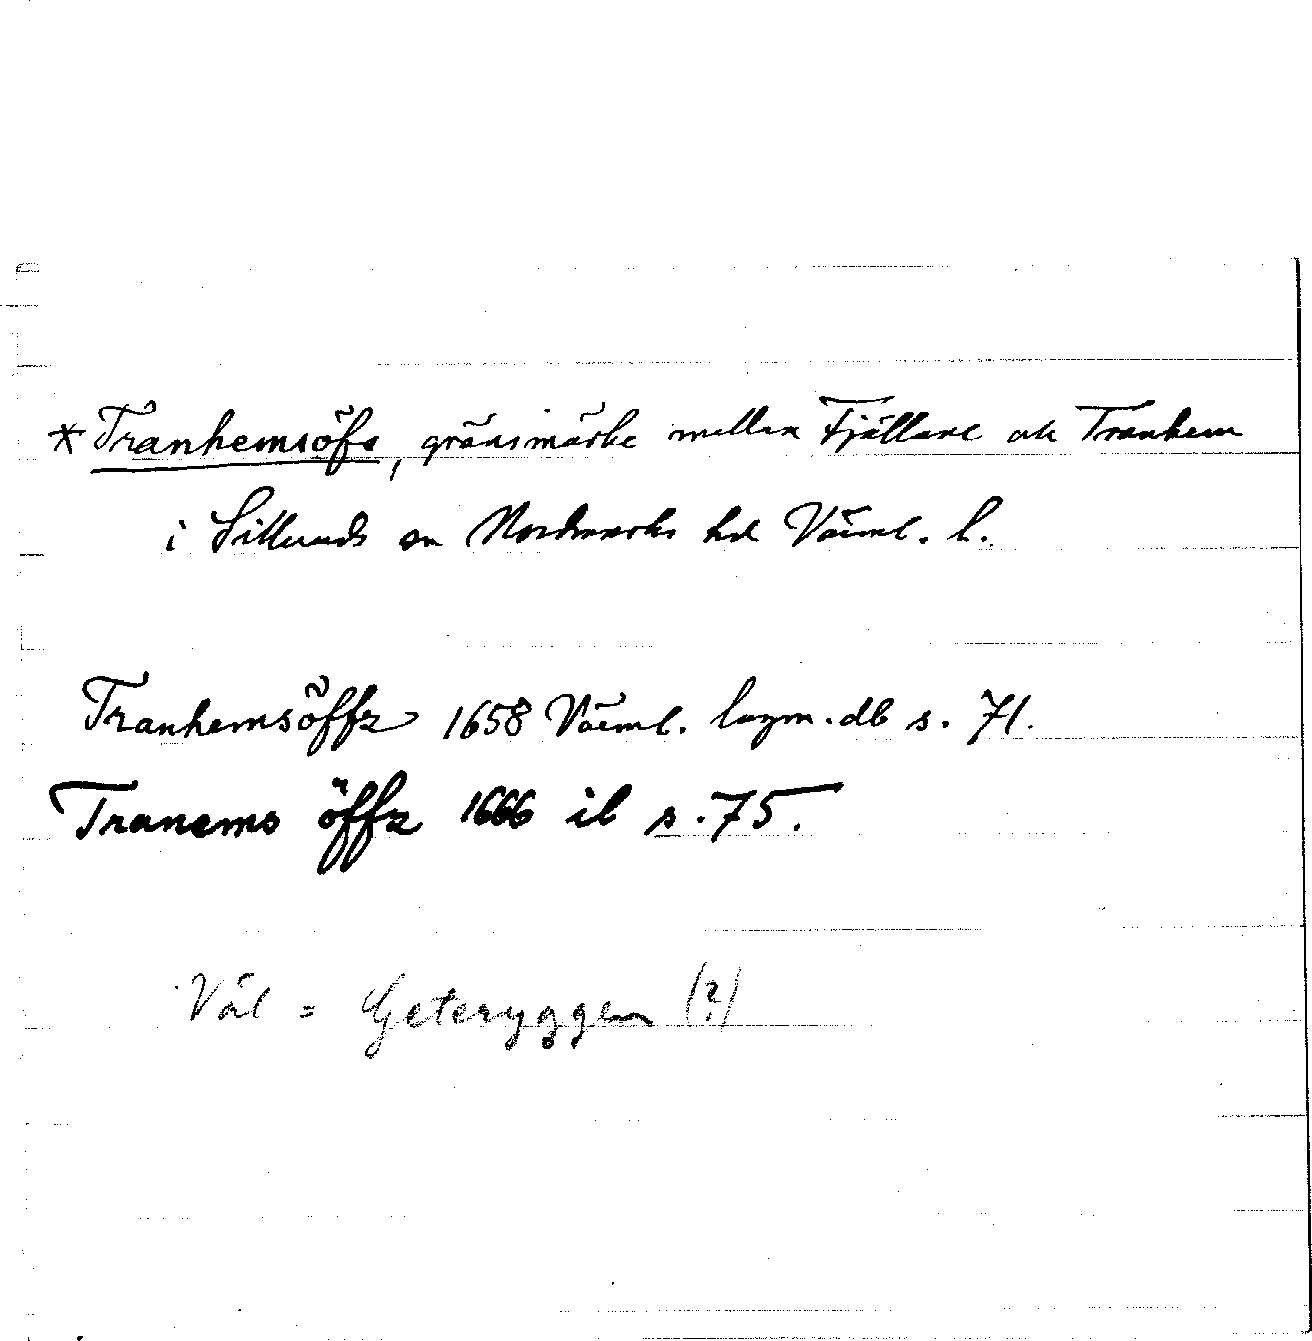 *Tranhemsöfs, gränsmärke mellan Fjällane ok Tranhem
i Silleruds sn Nordmarks hd Värml. l.
Tranhemsöffz 1658 Värml. lagm.db s. 71.
Tranems öffz 1666 ib s. 75.
Väl = Geteryggen (?)